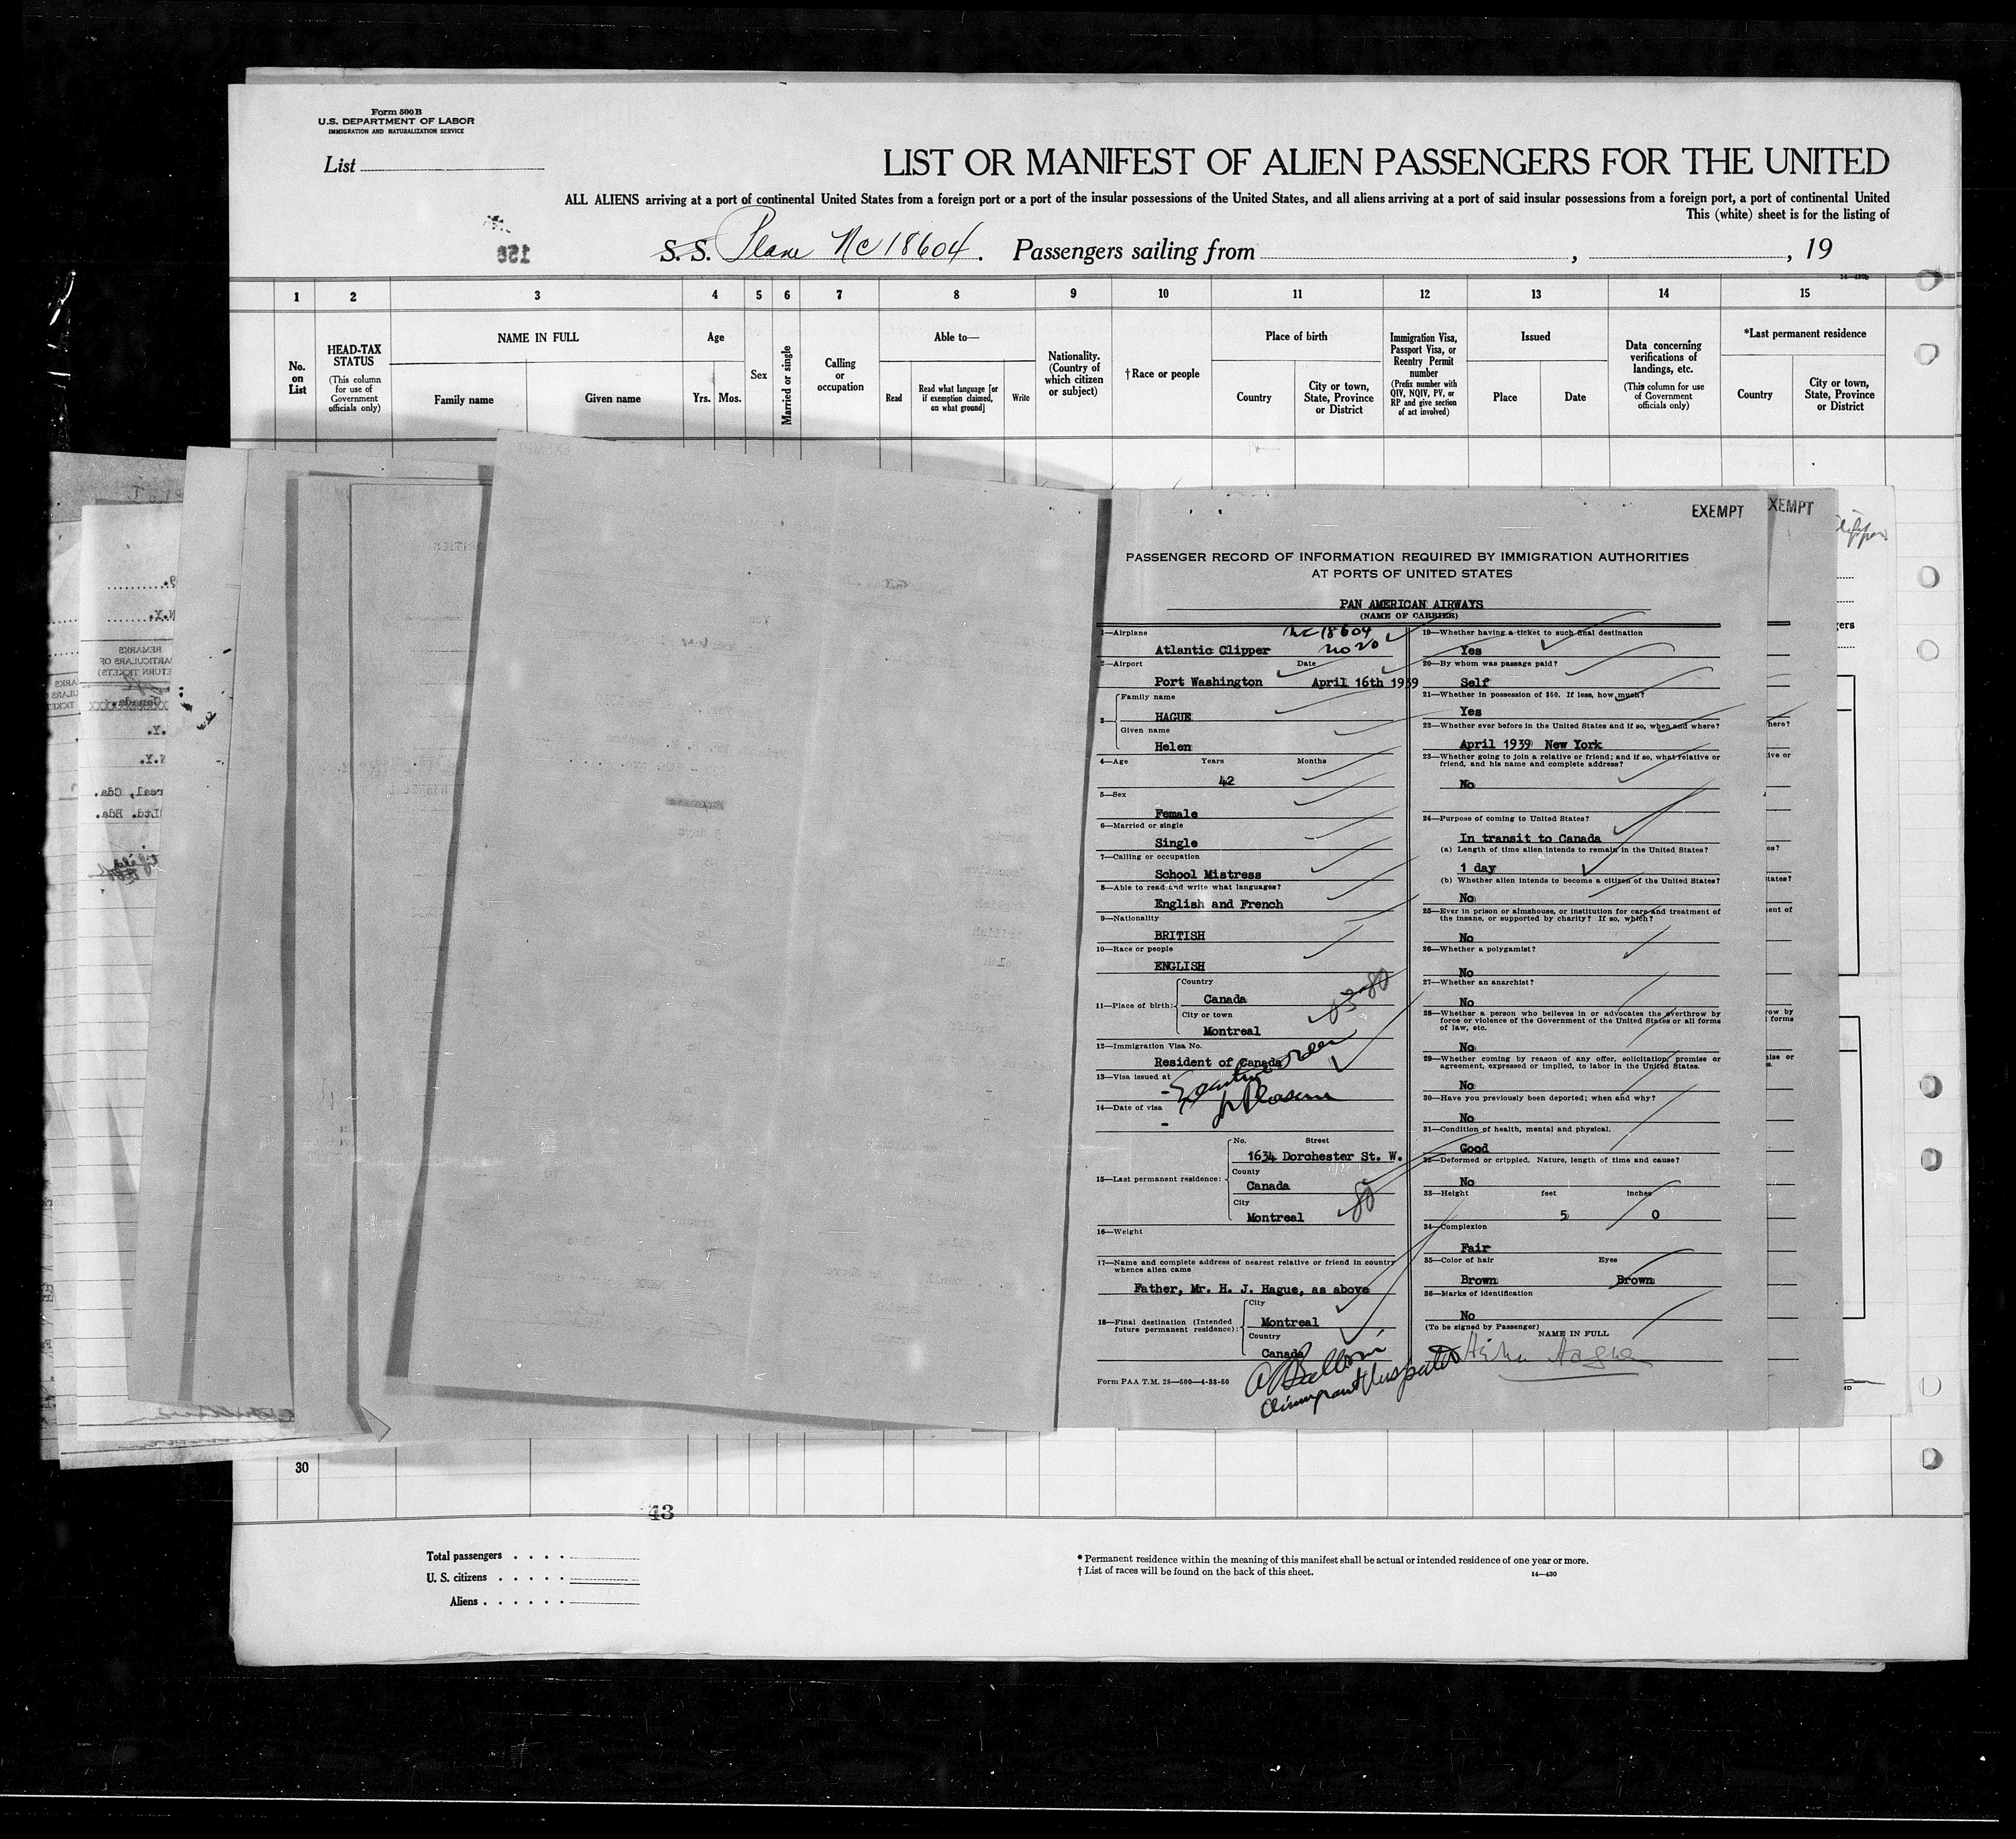 Form 500B
U.S. DEPARTMENT OF LABOR
IMMIGRATION AND NATURALIZATION SERVICE
List
LIST OR MANIFEST OF ALIEN PASSENGERS FOR THE UNITED
ALL ALIENS arriving at a port of continental United States from a foreign port or a part of the insular possessions of the United States, and all aliens arriving at a port of said insular possessions from a foreign port, a port of continental United
This (white) sheet is for the listing of
S.S. Plane NC 18604. Passengers sailing from , , 19
14—430b
1 2 3 4 5 6 7 8 9 10 11 12 13 14 15
No. on List
HEAD-TAX STATUS
(This column for use of Government officials only)
NAME IN FULL
Family name Given name
Age
Yrs. Mos.
Sex
Married or single
Calling or occupation
Able to—
Read
Read what language [or if exemption claimed, on what ground]
Write
Nationality. (Country of which citizen or subject)
†Race or people
Place of birth
Country
City or town, State, Province or District
Immigration Visa, Passport Visa, or Reentry Permit number
(Prefix number with QIV, NQIV, PV, or RP and give section of act involved)
Issued
Place Date
Data concerning verifications of landings, etc.
(This column for use of Government officials only)
*Last permanent residence
Country
City or town, State, Province or District
EXEMPT
EXEMPT
PASSENGER RECORD OF INFORMATION REQUIRED BY IMMIGRATION AUTHORITIES
AT PORTS OF UNITED STATES
PAN AMERICAN AIRWAYS
(NAME OF CARRIER)
1—Airplane NC 18604
Atlantic Clipper no 20
2—Airport Date
Port Washington April 16th 1939
3 Family name
HAGUE
Given name
Helen
4—Age Years Months
42
5—Sex
Female
6—Married or single
Single
7—Calling or occupation
School Mistress
8—Able to read and write what languages?
English and French
9—Nationality
BRITISH
10—Race or people
ENGLISH
11—Place of birth: Country
Canada
City or town
Montreal
12—Immigration Visa No.
Resident of Canada
13—Visa issued at
-
14—Date of visa
-
15—Last permanent residence: No. Street
1634 Dorchester St. W.
County
Canada
City
Montreal
80
16—Weight
17—Name and complete address of nearest relative or friend in country whence alien came
Father, Mr. H. J. Hague, as above
18—Final destination (Intended future permanent residence): City
Montreal
Country
Canada
Form PAA T.M. 28—500—4-38-50
19—Whether having a ticket to such final destination
Yes
20—By whom was passage paid?
Self
21—Whether in possession of $50. If less, how much?
Yes
22—Whether ever before in the United States and if so, when and where?
April 1939 New York
23—Whether going to join a relative or friend; and if so, what relative or friend, and his name and complete address?
No
24—Purpose of coming to United States?
In transit to Canada
(a) Length of time alien intends to remain in the United States?
1 day
(b) Whether alien intends to become a citizen of the United States?
No
25—Ever in prison or almshouse, or institution for care and treatment of the insane, or supported by charity? If so, which?
No
26—Whether a polygamist?
No
27—Whether an anarchist?
No
28—Whether a person who believes in or advocates the overthrow by force or violence of the Government of the United States or all forms of law, etc.
No
29—Whether coming by reason of any offer, solicitation, promise or agreement, expressed or implied, to labor in the United States.
No
30—Have you previously been deported; when and why?
No
31—Condition of health, mental and physical.
Good
32—Deformed or crippled. Nature, length of time and cause?
No
33—Height feet inches
5 0
34—Complexion
Fair
35—Color of hair Eyes
Brown Brown
36—Marks of identification
No
(To be signed by Passenger)
NAME IN FULL
Helen Hague
30
43
Total passengers
U. S. citizens
Aliens
* Permanent residence within the meaning of this manifest shall be actual or intended residence of one year or more.
† List of races will be found on the back of this sheet.
14—430